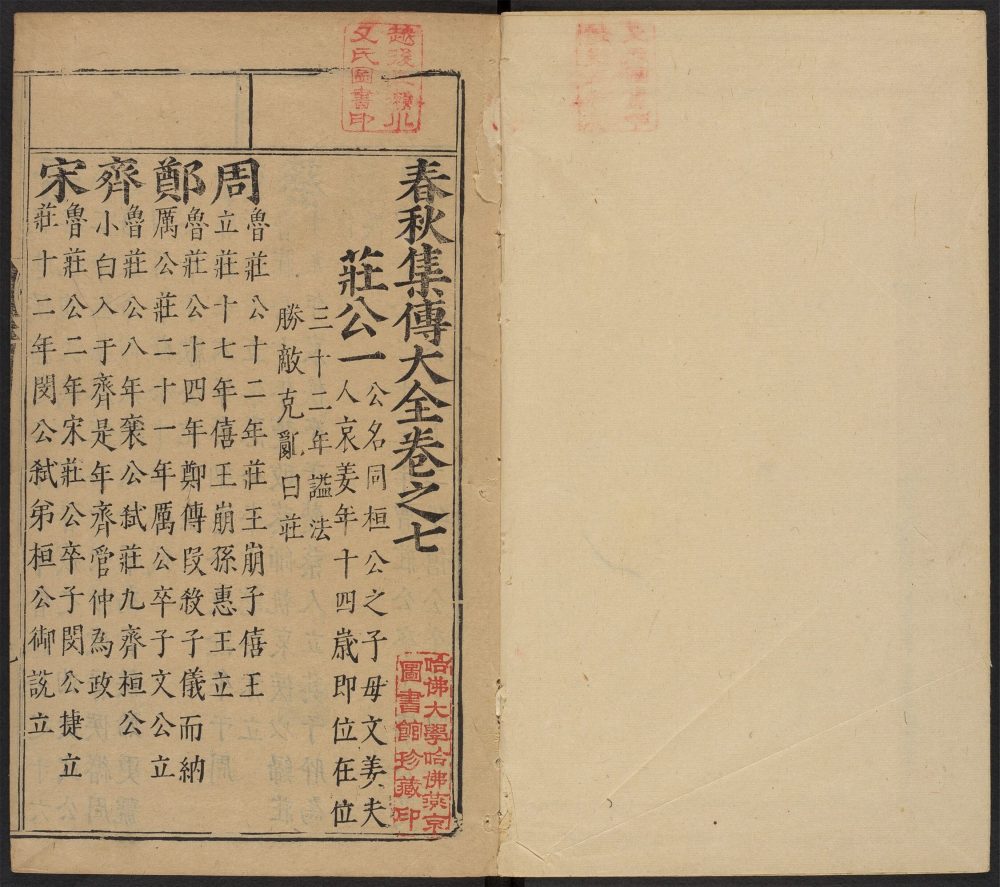 春秋集傳大全卷之七
莊公一
公名同桓公之子母文姜夫
人哀姜年十四歲即位在位
三十二年謚法
勝敵克亂曰莊
周
魯莊公十二年莊王崩子僖王
立莊十七年僖王崩孫惠王立
鄭
魯莊公十四年鄭傅叚殺子儀而納
厲公莊二十一年厲公卒子文公立
齊
魯莊公八年襄公弑莊九齊桓公
小白入于齊是年齊管仲為政
宋
魯莊公二年宋莊公卒子閔公捷立
莊十二年閔公弑弟桓公御說立
哈佛大學哈佛燕京
圖書館珍藏印
文氏圖書印